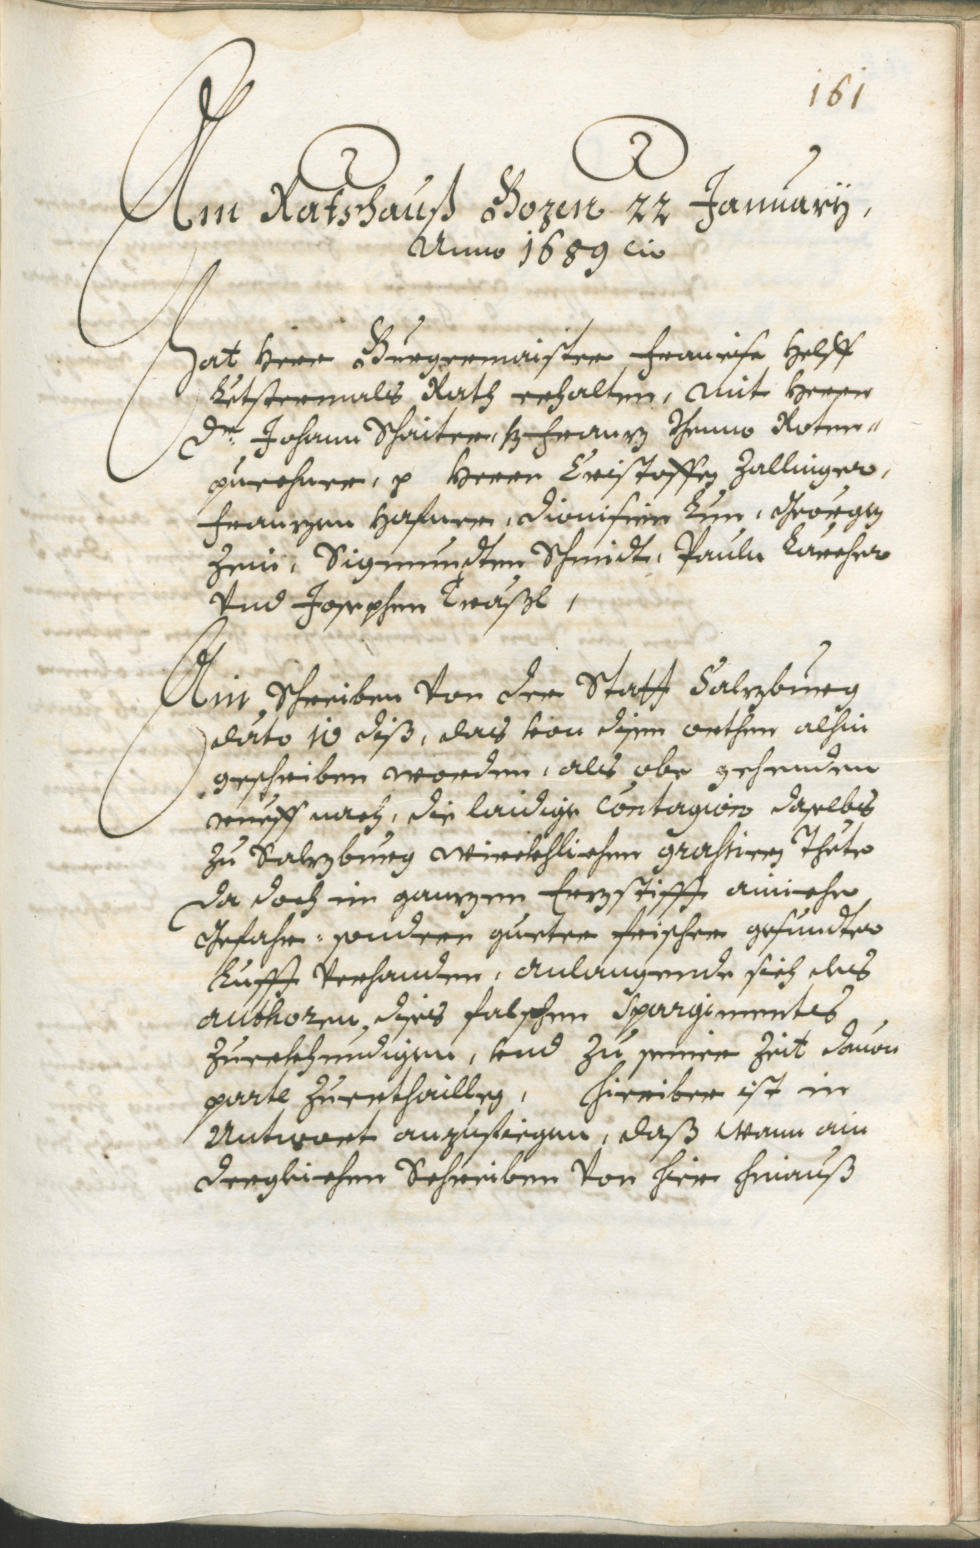 161
Am Ratshauß Bozen 22 January,
Anno 1689 etc
Hat Herr Burgermaister Francisc Helff
Letstermals Rath gehalten, mit Herrn
Dr. Johann Schaiter, Franz Thomo Roten-
purcher, p Herrn Cristoffen Zallinger,
Franzen Hafner, Dionisien Kun, Georgen
Zeni, Sigmundten Schmidt, Pauln Karcher
Und Josephen Crässl,
Ain Schreiben von der Statt Salzburg
dato 10 diß, das von disen orthen alhin
geschriben worden, als obe gehenden
rueff nach, die laidige Contagion daselbs
zu Salzburg würckhlichen grassiern Thete
da doch im ganzen Erzstüfft ainiche
Gefahr, sondern gueter frischer gesundter
Lufft verhanden, anlangende sich des
authoren dises falschen Spargimentes
zuerkhundigen, und zu seiner Zeit davon
parte zuerthaillen, hierüber ist in
Antwort anzufiegen, daß wann ain
dergleichen Schreiben von hier hinauß